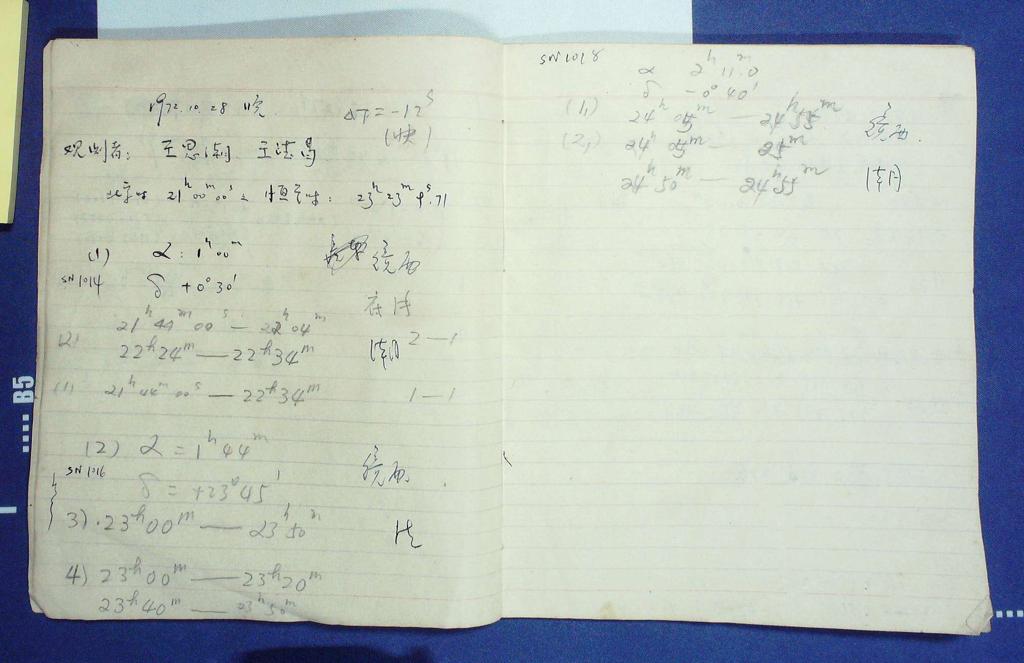 1972.10.28 晚 ΔT = -12ˢ
(快)
观测者: 王思潮 王法
北京时 21ʰ00ᵐ00ˢ 恒星时: 23ʰ23ᵐ9ˢ.71
(1) α: 1ʰ00ᵐ 镜西
SN 1014 δ +0°30'
21ʰ44ᵐ00ˢ — 22ʰ04ᵐ
(2) 22ʰ24ᵐ — 22ʰ34ᵐ 2—1
(1) 21ʰ44ᵐ00ˢ — 22ʰ34ᵐ 1—1
(2) α = 1ʰ44ᵐ 镜西
SN 1016 δ = +23°45'
3) 23ʰ00ᵐ — 23ʰ50ᵐ
4) 23ʰ00ᵐ — 23ʰ20ᵐ
23ʰ40ᵐ — 23ʰ50ᵐ
SN 1018 α 2ʰ11ᵐ.0
δ -0°40'
(1) 24ʰ05ᵐ — 24ʰ55ᵐ 镜西.
(2) 24ʰ05ᵐ — 25ᵐ
24ʰ50ᵐ — 24ʰ55ᵐ
B5